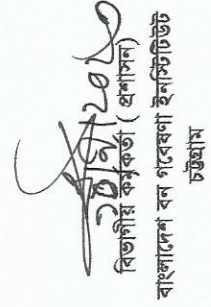 বিভাগীয় কর্মকর্তা ( প্রশাসন)
বাংলাদেশ বন গবেষণা ইনস্টিটিউট
চট্টগ্রাম